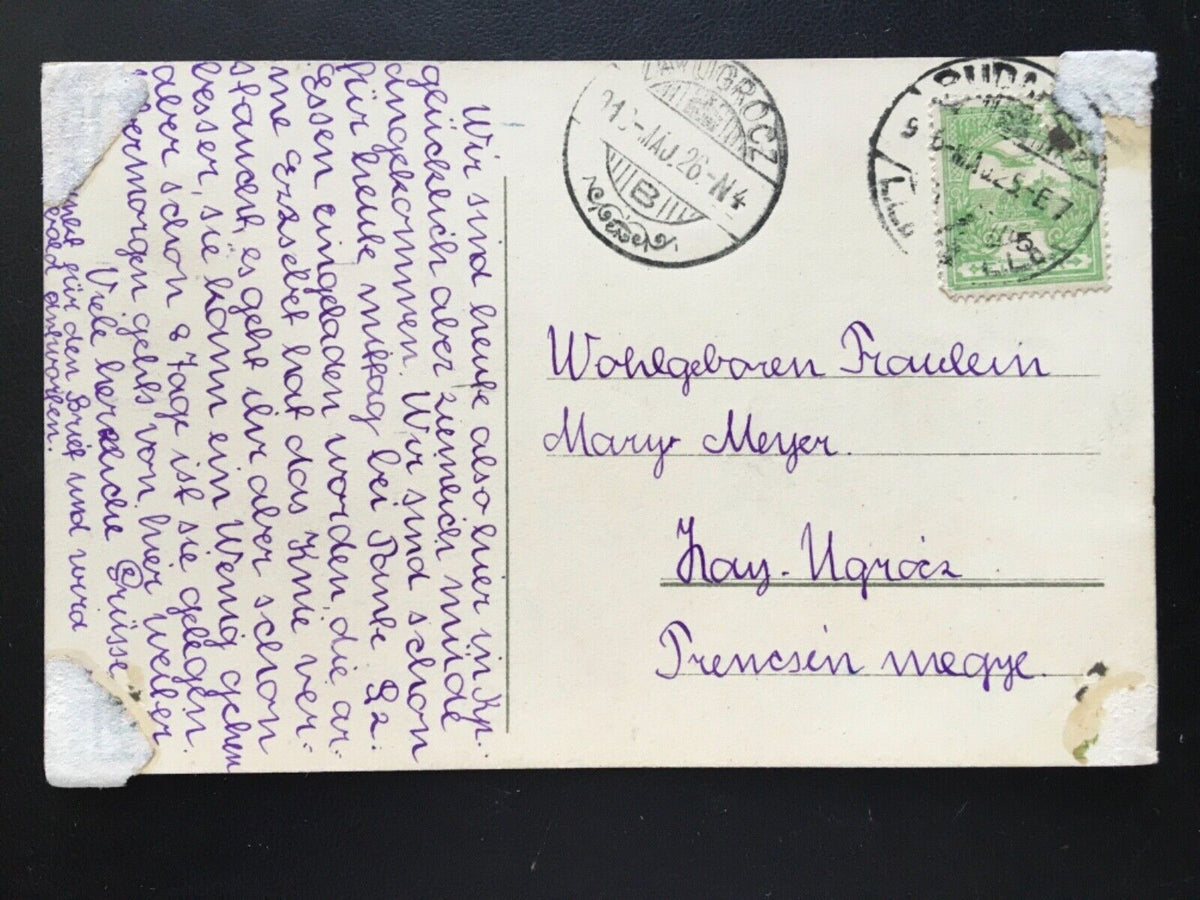 Wir sind heute also hier in Kp.
glücklich aber ziemlich müde
angekommen. Wir sind schon
für heute mittag bei Tante Sz.
Essen eingladen worden, die ar-
me Erzsébet hat das Knie ver-
staucht, es geht ihr aber schon
besser, sie kann ein Wenig gehen
aber schon 8 Tage ist sie gelegen
übermorgen gehts von hier weiter
Viele herzliche Grüsse
für den Brief und wird
bald antworten.
ZAYUGRÓCZ
913 MÁJ. 26. N4
B
BUDAPEST
MÁJ. 25. E7
5
Wohlgeboren Fraulein
Mary Meyer.
Zay-Ugrócz
Trencsén megye.